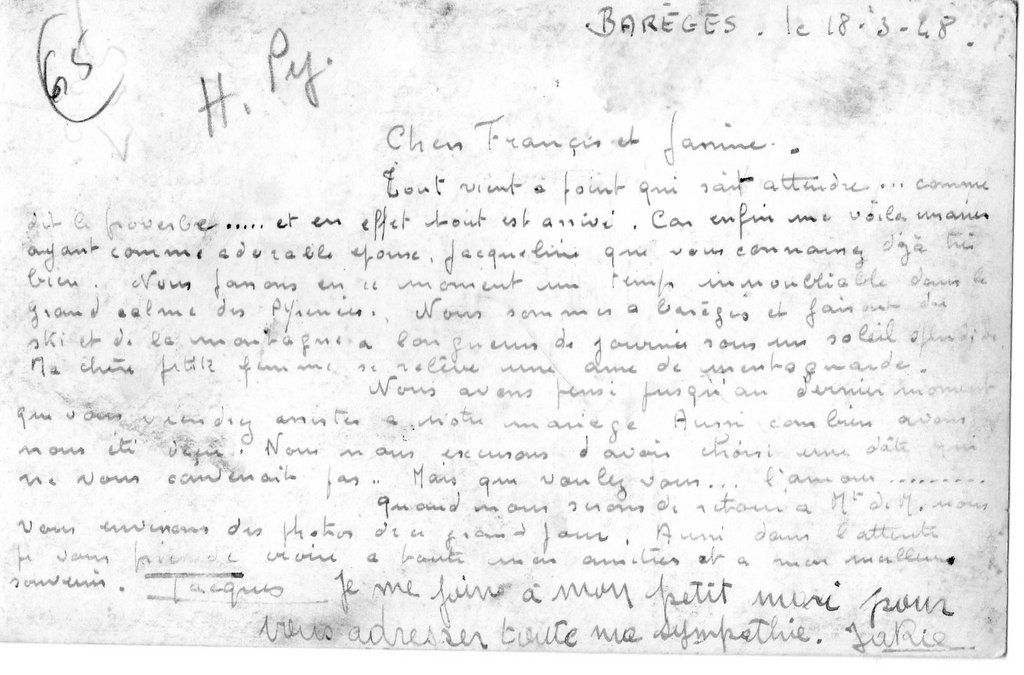 BARÈGES. le 18-3-48.
65
H. Py.
Chers François et Janine.
Tout vient à point qui sait attendre... comme
dit le proverbe..... et en effet tout est arrivé. Car enfin me voilà marié
ayant comme adorable épouse, Jacqueline que vous connaissez déjà très
bien. Nous passons en ce moment un temps innoubliable dans le
grand calme des Pyrénées. Nous sommes a barèges et faisons du
ski et de la montagne a longueurs de journée sous un soleil splendide
Ma chère petite femme se relève une ame de montagnarde.
Nous avons pensé jusqu'au dernier moment
que vous viendrez assister a notre mariage Aussi combien avons
nous été déçu. Nous nous excusons d'avoir choisi une dâte qui
ne vous convenait pas.. Mais que voulez vous... l'amour.........
Quand nous serons de retour a Mt de M. nous
vous enverrons des photos de ce grand jour. Aussi dans l'attente
je vous croire a toute mon amitiés et a mon meilleur
souvenir. Jacques Je me joins à mon petit mari pour
vous adresser toute ma sympathie. JaKie